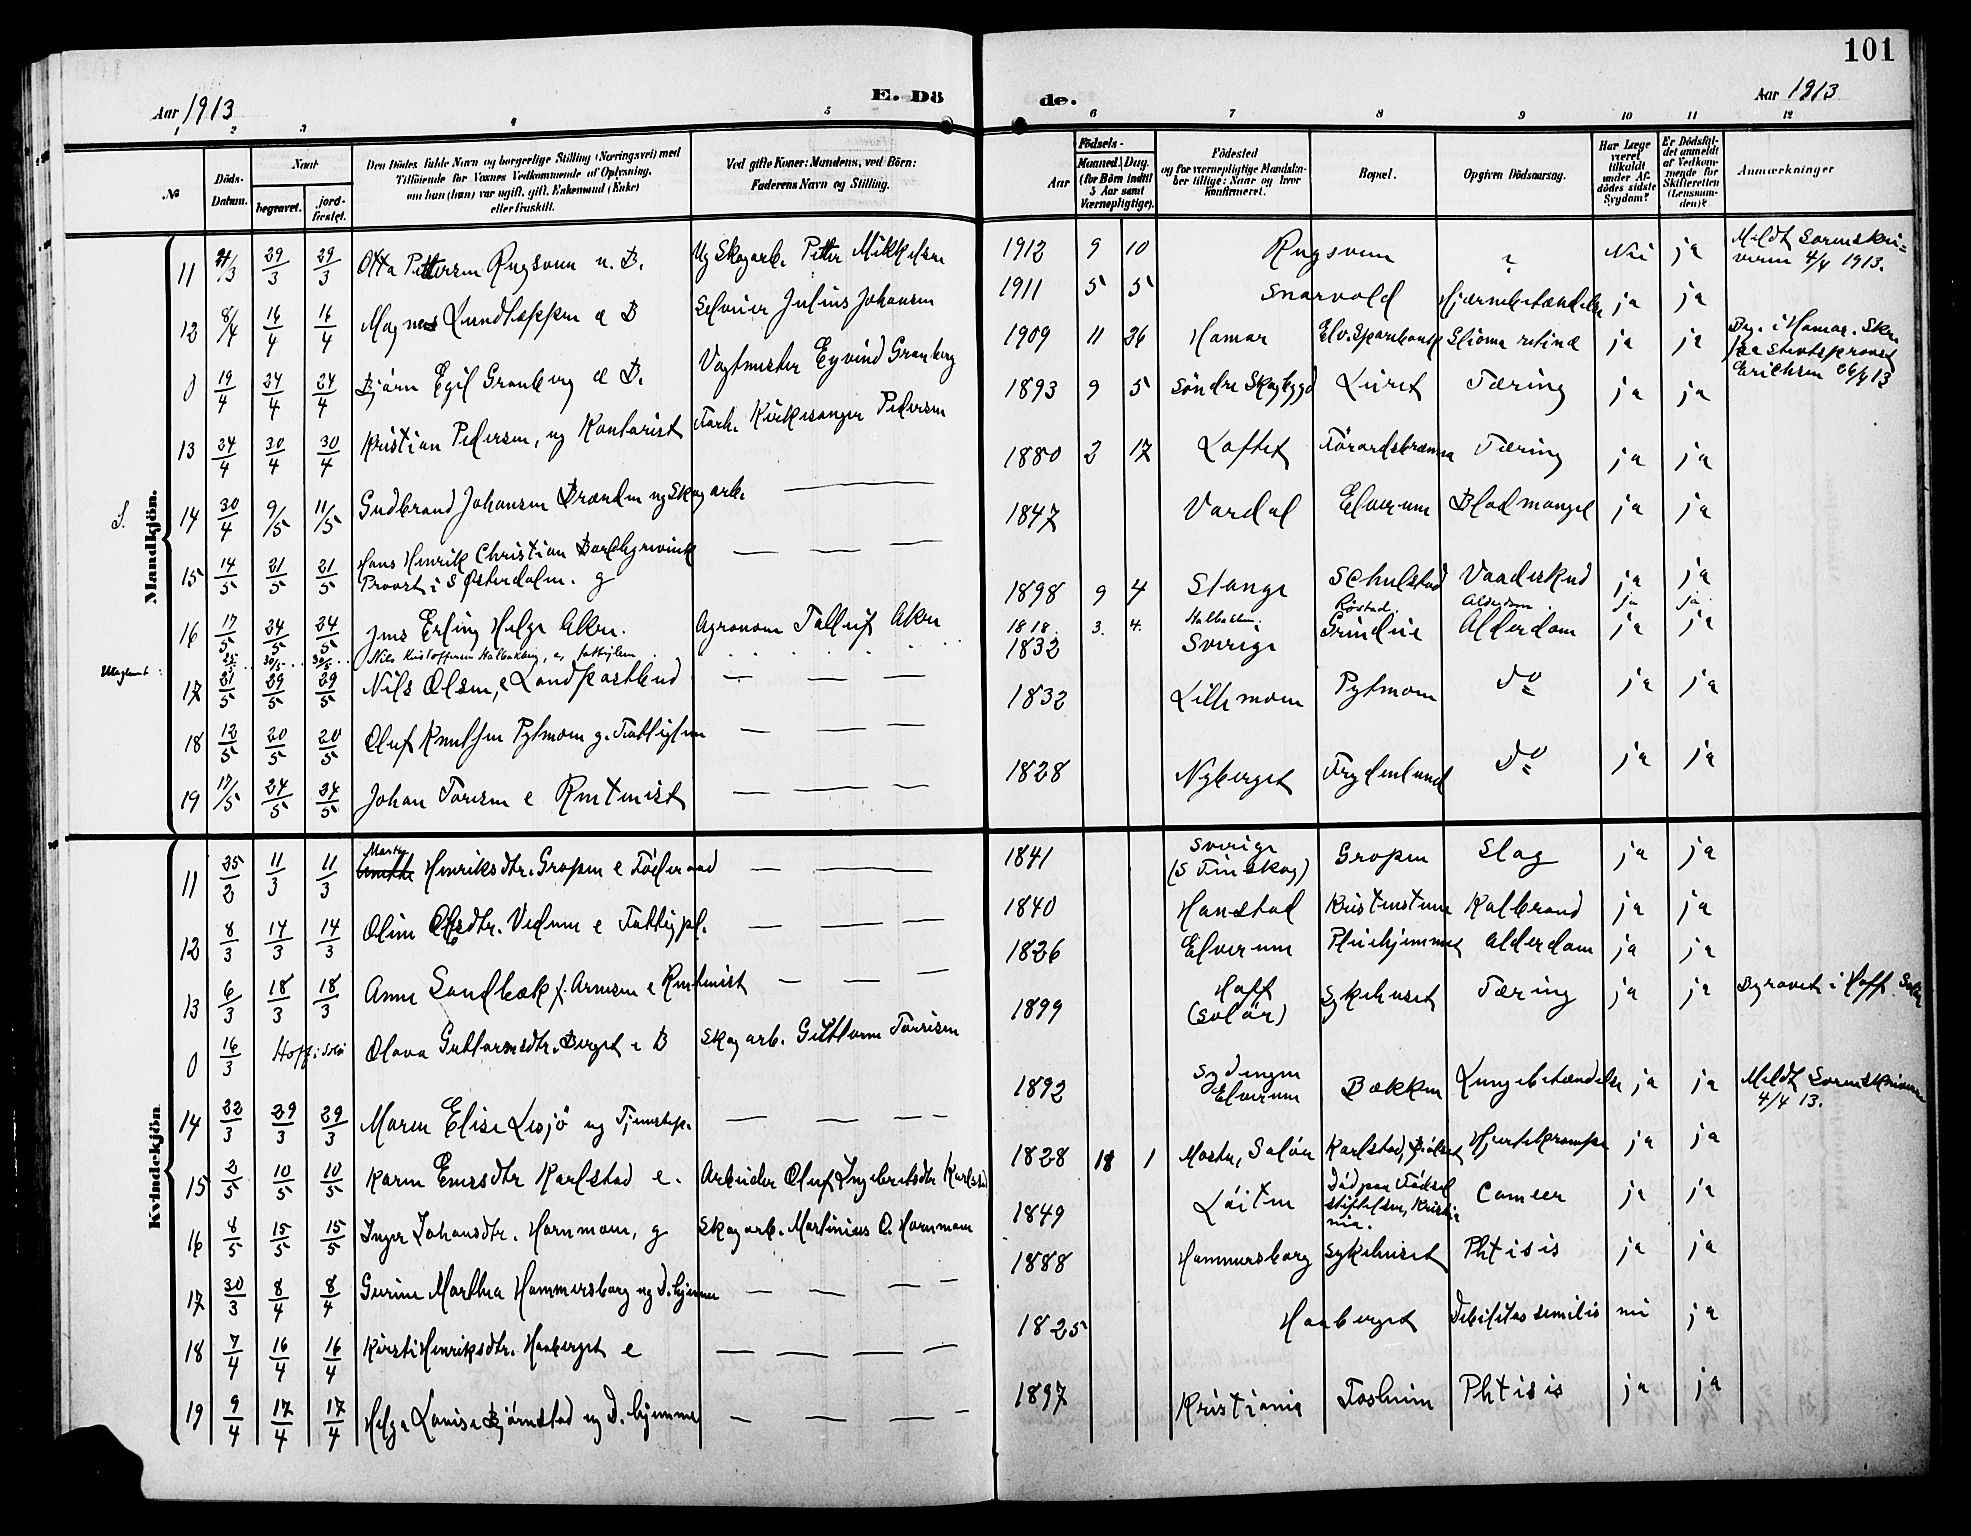 101
Aar 1913
E. Dö
de.
Aar 1913
1 2 3 4 5 6 7 8 9 10 11 12
No
Döds-Datum.
Naar begravet. jordfæstet.
Den Dödes fulde Navn og borgerlige Stilling (Næringsvei) med Tilföiende for Voxnes Vedkommende af Oplysning, om han (hun) var ugift, gift, Enkemand (Enke) eller fraskilt.
Ved gifte Koner: Mandens, ved Börn: Faderens Navn og Stilling.
Födsels- Aar Maaned. Dag. (for Börn indtil 5 Aar samt Værnepligtige).
Födested og for værnepligtige Mandskaber tillige: Naar og hvor konfirmeret.
Bopæl.
Opgiven Dödsaarsag.
Har Læge været tilkaldt under Afdödes sidste Sygdom?
Er Dödsfaldet anmeldt af Vedkommende for Skifteretten (Lensmanden)?
Anmærkninger
Mandkjön.
11 21/3 29/3 29/3 Otta Pettersen Rugsveen u. B. Ug Skogarb. Petter Mikkelsen 1912 9 10 Rugsveen ? Nei ja Meldt Sorenskriveren 4/4 1913.
12 8/4 16/4 16/4 Magnus Lundteppen æ B Selveier Julius Johansen 1911 5 5 Snarvold Hjærnebetændelse ja ja
0 19/4 24/4 24/4 Bjørn Egil Granberg æ B. Vagtmester Eyvind Granberg 1909 11 26 Hamar Elv. Sparebank Glioma retinæ ja ja Beg. i Hamar. Skr. fra Stiftsprovst Erichsen 26/4 13
13 24/4 30/4 30/4 Kristian Pedersen, ug Kontorist Forh. Kirkesanger Pedersen 1893 9 5 Søndre Skogbygd Luret Tæring ja ja
S. 14 30/4 9/5 11/5 Gudbrand Johansen Brænden ug Skogarb. — 1880 2 17 Loftet Førardsbrænna Tæring ja ja
15 14/5 21/5 21/5 Hans Henrik Christian Borchgrevink Provst i S Østerdalen. g — — — 1847 Vardal Elverum Blodmangel ja ja
16 17/5 24/5 24/5 Jens Erling Helge Aker. Agronom Tollef Aker 1898 9 4 Stange Schulstad Vaadeskud ja ja
Uteglemt: 25/5 30/5 30/5 Nils Kristoffersen Halbakken, e, fattiglem 1818. 3. 4. Halbakken. Røstad. Alderdom. ja ja
17 21/5 29/5 29/5 Nils Olsen, e Landpostbud — — — 1832 Sverige Grindlie Alderdom ja ja
18 12/5 20/5 20/5 Oluf Knutsen Pytmoen g. Fattiglem — — — 1832 Lillemoen Pytmoen Do ja ja
19 17/5 24/5 24/5 Johan Torisen e Rentenist — — — 1828 Nyberget Frydenlund Do ja ja
Kvindekjön
11 25/2 11/3 11/3 Marte Henriksdtr. Gropen e Föderaad — — 1841 Sverige (S Finskog) Gropen Slag ja ja
12 8/3 14/3 14/3 Oline Olsdtr. Vedum e Fattigpl. — — — 1840 Hanstad Kristinstuen Kolbrand ja ja
13 6/3 18/3 18/3 Anne Sandbæk f. Arnesen e Rentenist — — — 1826 Elverum Pleiehjemmet Alderdom ja ja
0 16/3 Hoff i Solø Olava Guttormsdtr. Berget e B Skogarb. Guttorm Torrisen 1899 Hoff (Solör) Sykehuset Tæring ja ja Begravet i Hoff. Solø
14 22/3 29/3 29/3 Maren Elise Lesjö ug Tjenestep. — — — 1892 Sydengen Elverum Bækken Lungebetændelse ja ja Meldt Sorenskriveren 4/4 13.
15 2/5 10/5 10/5 Karen Enersdtr Karlstad e. Arbeider Oluf Ingebretsdtr Karlstad 1828 18 1 Moster, Solør Karlstad, Hjertekrampe ja ja
16 8/5 15/5 15/5 Inger Johansdtr. Hornmoen, g Skogarb. Martinius O. Hornmoen 1849 Löiten Död paa Fødselstiftelsen, Kristiania. Canser ja ja
17 30/3 8/4 8/4 Gurine Marthea Hammersborg ug D. hjemme — — — — 1888 Hammersborg Sykehuset Phtisis ja ja
18 7/4 16/4 16/4 Kirsti Henriksdtr. Haaberget e — — — — 1825 Haaberget Debilitas senilis nei ja
19 9/4 17/4 17/4 Helga Lovise Bjørnstad ug D. hjemme — — — — 1897 Kristiania Fosheim Phtisis ja ja